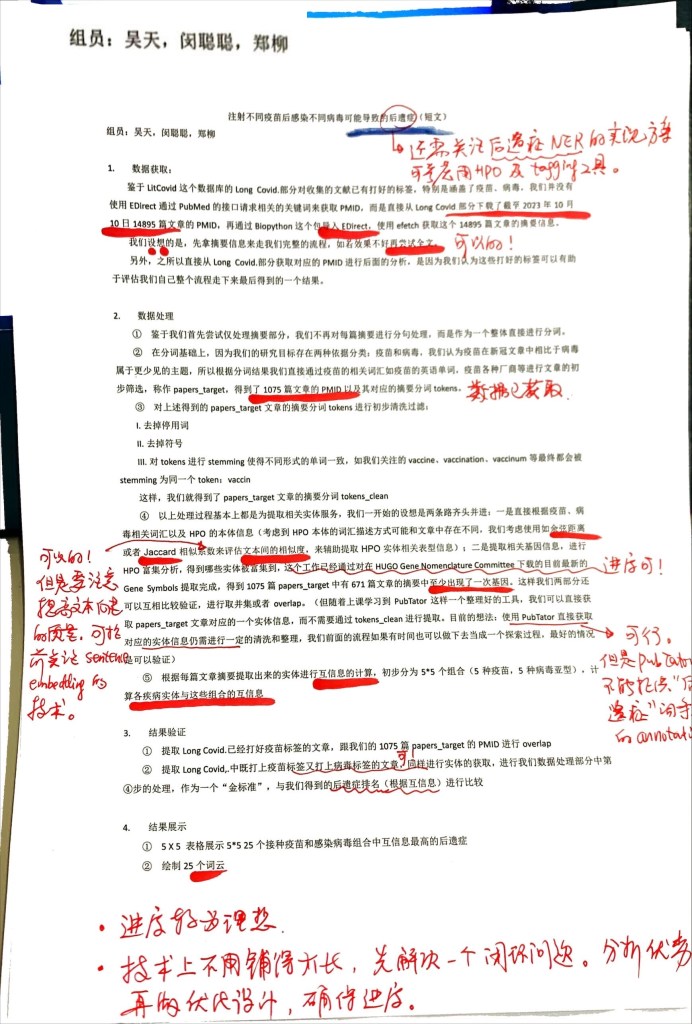 组员：吴天，闵聪聪，郑柳
注射不同疫苗后感染不同病毒可能导致的后遗症（短文）
组员：吴天，闵聪聪，郑柳
还需关注后遗症 NER 的实现方案
可考虑用 HPO 及 tagging 工具。
1. 数据获取：
鉴于 LitCovid 这个数据库的 Long Covid.部分对收集的文献已有打好的标签，特别是涵盖了疫苗、病毒，我们并没有
使用 EDirect 通过 PubMed 的接口请求相关的关键词来获取 PMID，而是直接从 Long Covid 部分下载了截至 2023 年 10 月
10 日 14895 篇文章的 PMID，再通过 Biopython 这个包导入 EDirect，使用 efetch 获取这个 14895 篇文章的摘要信息。
我们设想的是，先拿摘要信息来走我们完整的流程，如若效果不好再尝试全文。
可以的！
另外，之所以直接从 Long Covid.部分获取对应的 PMID 进行后面的分析，是因为我们认为这些打好的标签可以有助
于评估我们自己整个流程走下来最后得到的一个结果。
2. 数据处理
① 鉴于我们首先尝试仅处理摘要部分，我们不再对每篇摘要进行分句处理，而是作为一个整体直接进行分词。
② 在分词基础上，因为我们的研究目标存在两种依据分类：疫苗和病毒，我们认为疫苗在新冠文章中相比于病毒
属于更少见的主题，所以根据分词结果我们直接通过疫苗的相关词汇如疫苗的英语单词、疫苗各种厂商等进行文章的初
步筛选，称作 papers_target，得到了 1075 篇文章的 PMID 以及其对应的摘要分词 tokens。
数据已获取.
③ 对上述得到的 papers_target 文章的摘要分词 tokens 进行初步清洗过滤：
I. 去掉停用词
II. 去掉符号
III. 对 tokens 进行 stemming 使得不同形式的单词一致，如我们关注的 vaccine、vaccination、vaccinum 等最终都会被
stemming 为同一个 token：vaccin
这样，我们就得到了 papers_target 文章的摘要分词 tokens_clean
④ 以上处理过程基本上都是为提取相关实体服务，我们一开始的设想是两条路齐头并进：一是直接根据疫苗、病
毒相关词汇以及 HPO 的本体信息（考虑到 HPO 本体的词汇描述方式可能和文章中存在不同，我们考虑使用如余弦距离
或者 Jaccard 相似系数来评估文本间的相似度，来辅助提取 HPO 实体相关表型信息）；二是提取相关基因信息，进行
HPO 富集分析，得到哪些实体被富集到，这个工作已经通过对在 HUGO Gene Nomendature Committee 下载的目前最新的
Gene Symbols 提取完成，得到 1075 篇 papers_target 中有 671 篇文章的摘要中至少出现了一次基因。这样我们两部分还
可以互相比较验证，进行取并集或者 overlap。（但随着上课学习到 PubTator 这样一个整理好的工具，我们可以直接获
取 papers_target 文章对应的一个实体信息，而不需要通过 tokens_clean 进行提取。目前的想法：使用 PubTator 直接获取
对应的实体信息仍需进行一定的清洗和整理，我们前面的流程如果有时间也可以做下去当成一个探索过程，最好的情况
是可以验证）
可以的！
但是要注意
文本向量
的质量，可提
前关注 sentence
embedding 的
技术。
进度可！
可行。
但是 PubTator
不能提供“后
遗症”词条
的 annotati
⑤ 根据每篇文章摘要提取出来的实体进行互信息的计算，初步分为 5*5 个组合（5 种疫苗，5 种病毒亚型），计
算各疾病实体与这些组合的互信息
3. 结果验证
① 提取 Long Covid.已经打好疫苗标签的文章，跟我们的 1075 篇 papers_target 的 PMID 进行 overlap
可！
② 提取 Long Covid,.中既打上疫苗标签又打上病毒标签的文章，同样进行实体的获取，进行我们数据处理部分中第
④步的处理，作为一个“金标准”，与我们得到的后遗症排名（根据互信息）进行比较
4. 结果展示
① 5 X 5 表格展示 5*5 25 个接种疫苗和感染病毒组合中互信息最高的后遗症
② 绘制 25 个词云
• 进度较为理想.
• 技术上不用铺得太长，先解决一个闭环问题。分析优劣
再做优化设计，确保进度。